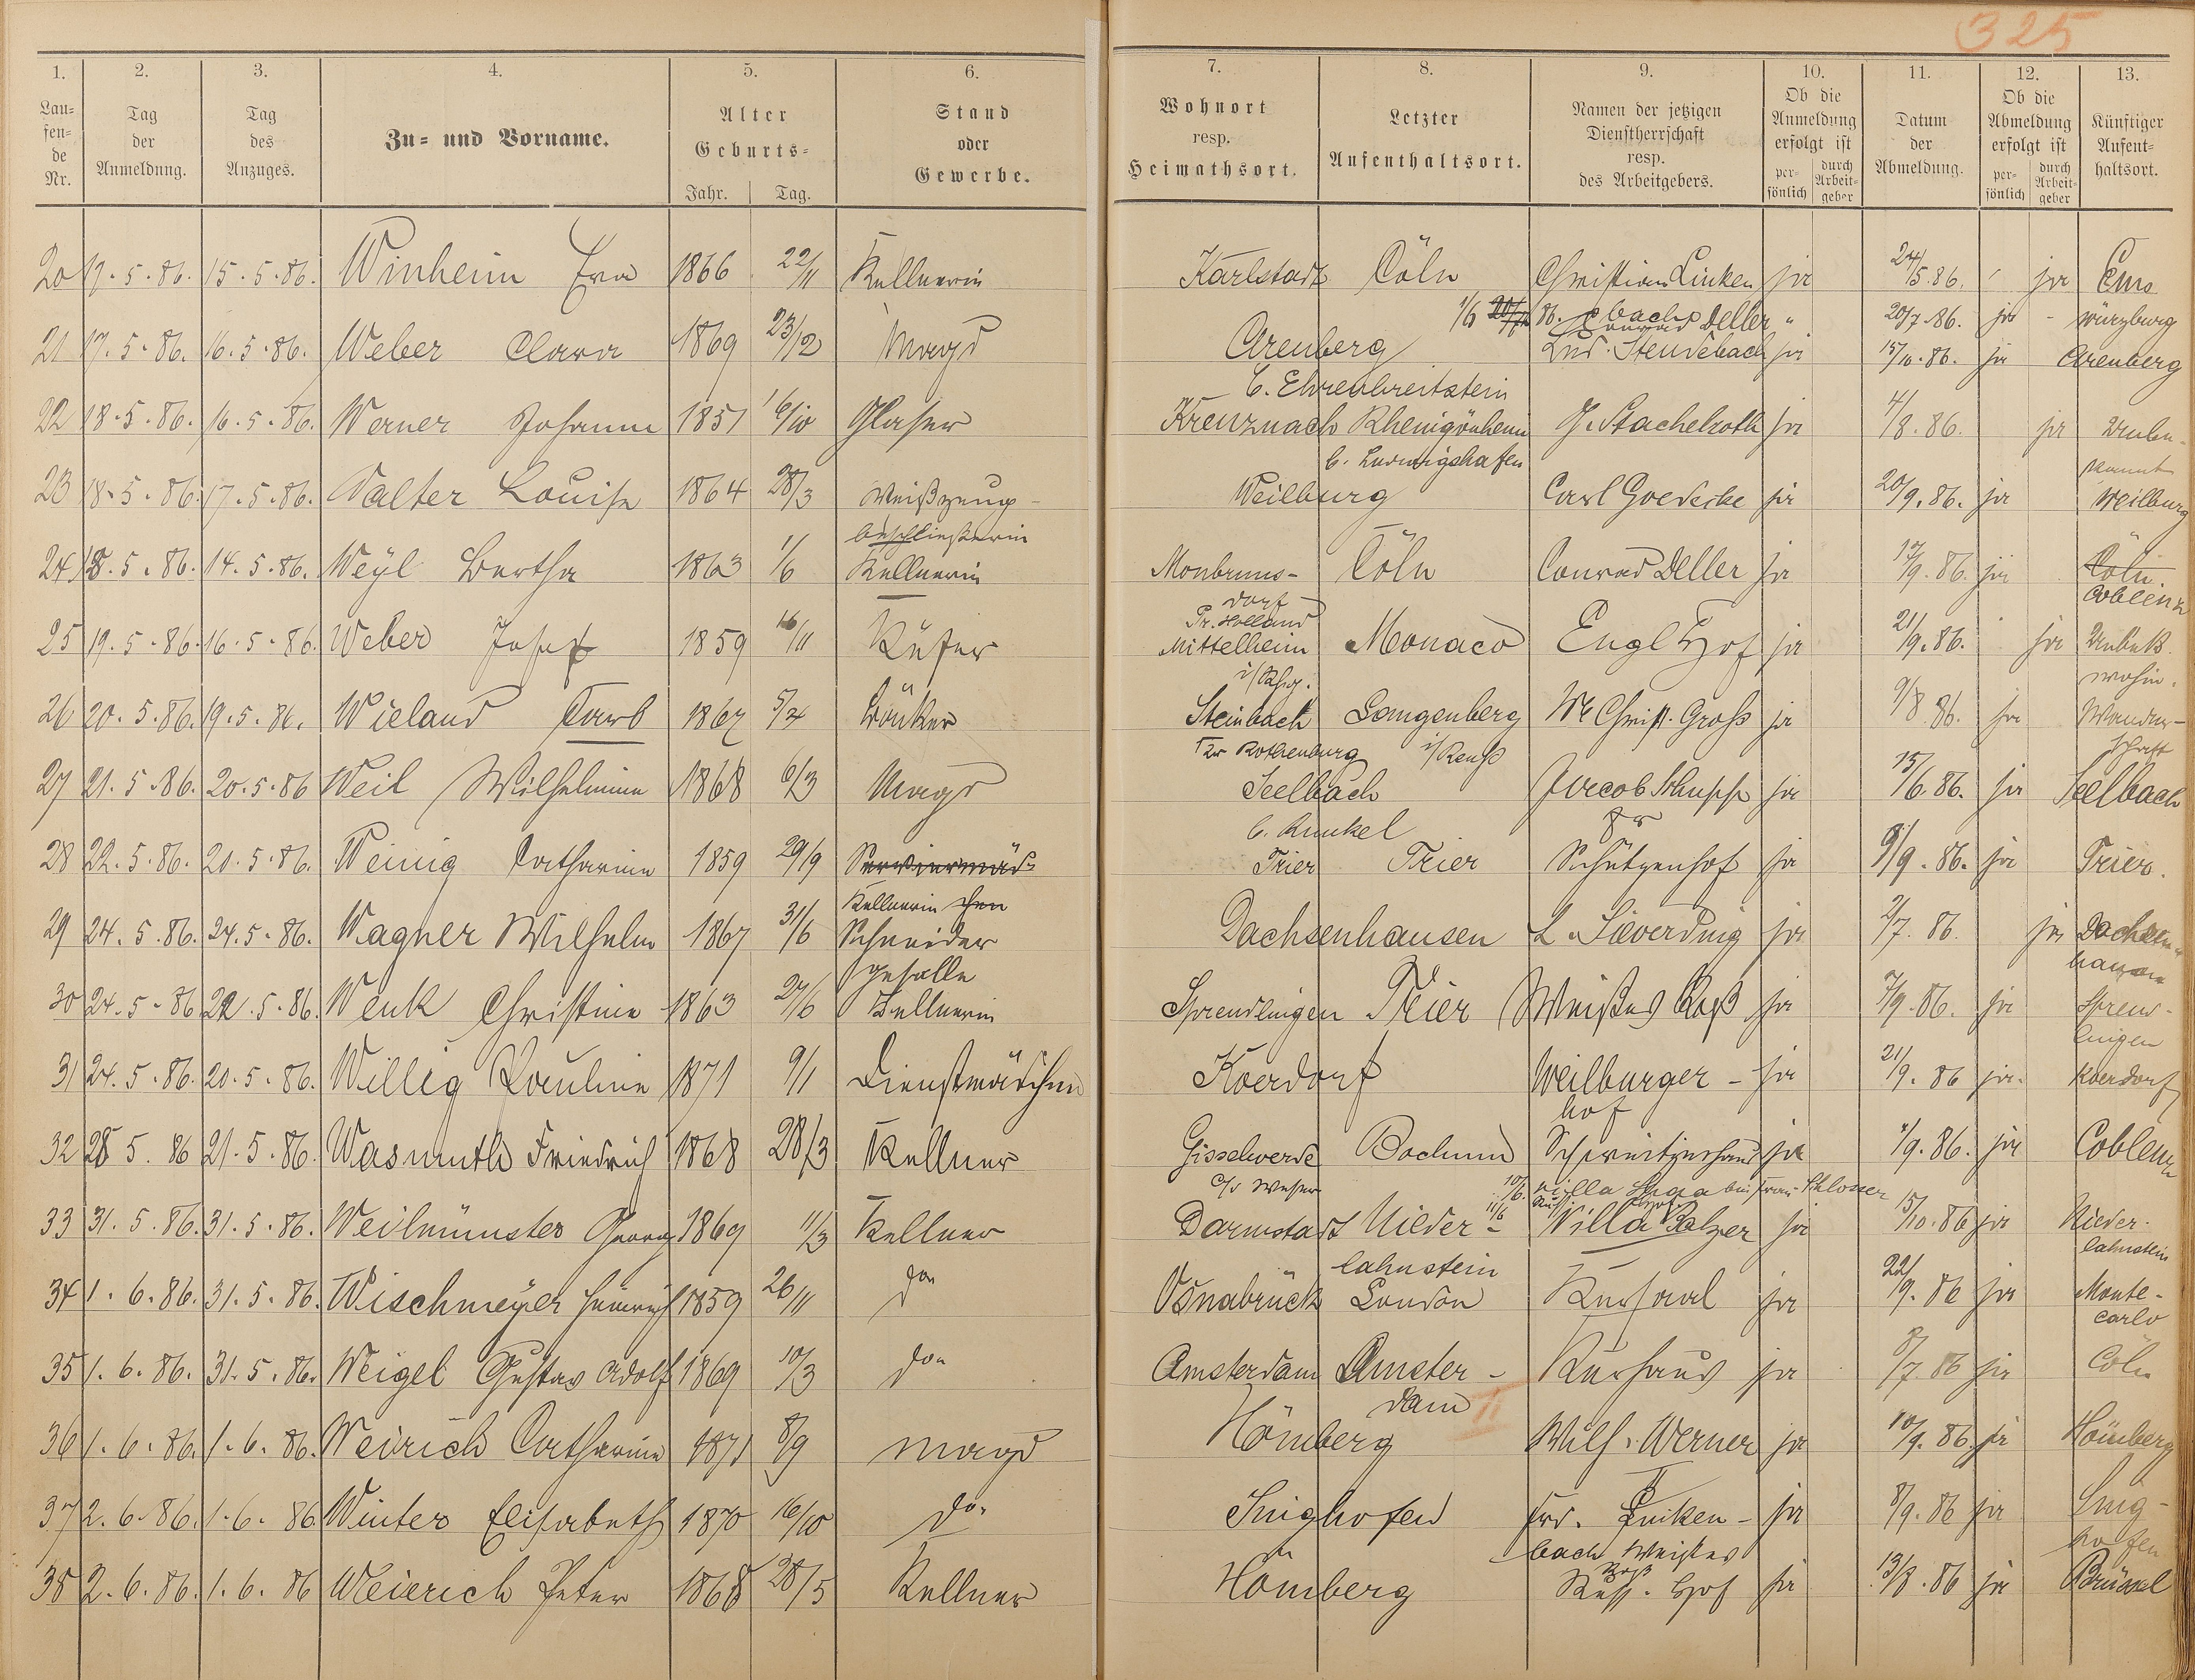 325
1. 2. 3. 4. 5. 6. 7. 8. 9. 10. 11. 12. 13.
Lau-
fen-
de
Nr.
Tag
der
Anmeldung.
Tag
des
Anzuges.
Zu- und Vorname.
Alter
Geburts-
Jahr. Tag.
Stand
oder
Gewerbe.
Wohnort
resp.
Heimathsort.
Letzter
Aufenthaltsort.
Namen der jetzigen
Dienstherrschaft
resp.
des Arbeitgebers.
Ob die
Anmeldung
erfolgt ist
per-
sönlich
durch
Arbeit-
geber
Datum
der
Abmeldung.
Ob die
Abmeldung
erfolgt ist
per-
sönlich
durch
Arbeit-
geber
Künftiger
Aufent-
haltsort.
20 17.5.86. 15.5.86. Winheim Eva 1866 22/11 Kellnerin Karlstadt Cöln Christian Linken ja 24/5.86. ja Ems
1/6 86. Conrad Deller " 20/7.86. ja - Würzburg
21 17.5.86. 16.5.86. Weber Clara 1869 23/12 Magd Arenberg Lud. Steudebach ja 15/10.86. ja Arenberg
b. Ehrenbreitstein
22 18.5.86. 16.5.86. Werner Johann 1851 16/10 Glaser Kreuznach Rheingönheim J. Stachelroth ja 4/8.86. ja Unbe-
b. Ludwigshafen kannt
23 18.5.86. 17.5.86. Valter Louise 1864 28/3 Weißzeug- Weilburg Carl Goedecke ja 20/9.86. ja Weilburg
beschließerin
24 18.5.86. 14.5.86. Weyl Bertha 1863 1/6 Kellnerin Monbruns- Cöln Conrad Deller ja 17/9.86. ja Cöln.
dorf Coblenz
Pr. Holland
25 19.5.86. 16.5.86. Weber Josef 1859 16/11 Küfer Mittelheim Monaco Engl Hof ja 21/9.86. ja Unbek.
i/Rhg. wohin.
26 20.5.86. 19.5.86. Wieland Carl 1867 5/4 Bäcker Steinbach Langenberg We Christ. Groß ja 9/8.86. ja Wander-
Rothenburg i/Reuß schaft
27 21.5.86. 20.5.86 Weil Wilhelmine 1868 6/3 Magd Seelbach Jacob Schupp ja 15/6.86. ja Seelbach
b. Runkel
28 22.5.86. 20.5.86. Weinig Catharine 1859 29/9 Serviermäd- Trier Trier Schützenhof ja 9/9.86. ja Trier.
Kellnerin chen
29 24.5.86. 24.5.86. Wagner Wilhelm 1867 31/6 Schneider Dachsenhausen L. Sieverding ja 2/7.86. ja Dachsen-
geselle hausen
30 24.5.86 22.5.86. Wenk Christine 1863 27/6 Kellnerin Sprendlingen Trier Weißes Roß ja 7/9.86. ja Sprend-
lingen
31 24.5.86. 20.5.86. Willig Pauline 1871 9/1 Dienstmädchen Koerdorf Weilburger- ja 21/9.86 ja. Koerdorf
hof
32 28 5.86 21.5.86. Wasmuth Friedrich 1868 28/3 Kellner Gisselwerde Bochum Schweitzerhaus ja 1/9.86. ja Coblenz
a/d Weser 10/6. Villa bei Frau Schlosser
33 31.5.86. 31.5.86. Weilmünster Georg 1869 11/3 Kellner Darmstadt Nieder- Villa Balzer ja 15/10.86 ja Nieder-
lahnstein lahnstein
34 1.6.86. 31.5.86. Wischmeyer Heinrich 1859 26/11 do Osnabrück London Kursaal ja 22/9.86 ja Monte-
carlo
35 1.6.86. 31.5.86. Weigel Gustav Adolf 1869 10/3 do Amsterdam Amster- Kurhaus ja 8/7 86 ja Cöln
dam II
36 1.6.86. 1.6.86. Weirich Catharine 1871 8/9 Magd Hömberg Wilh. Werner ja 10/9.86 ja Hömberg
37 2.6.86. 1.6.86 Winter Elisabeth 1870 16/10 do Singhofen Frd. Linken- ja 8/9.86 ja Sing-
bach Weißes hofen
Roß
38 2.6.86. 1.6.86 Weierich Peter 1868 28/5 Kellner Hömberg Russ. Hof ja 13/8.86 ja Brüssel